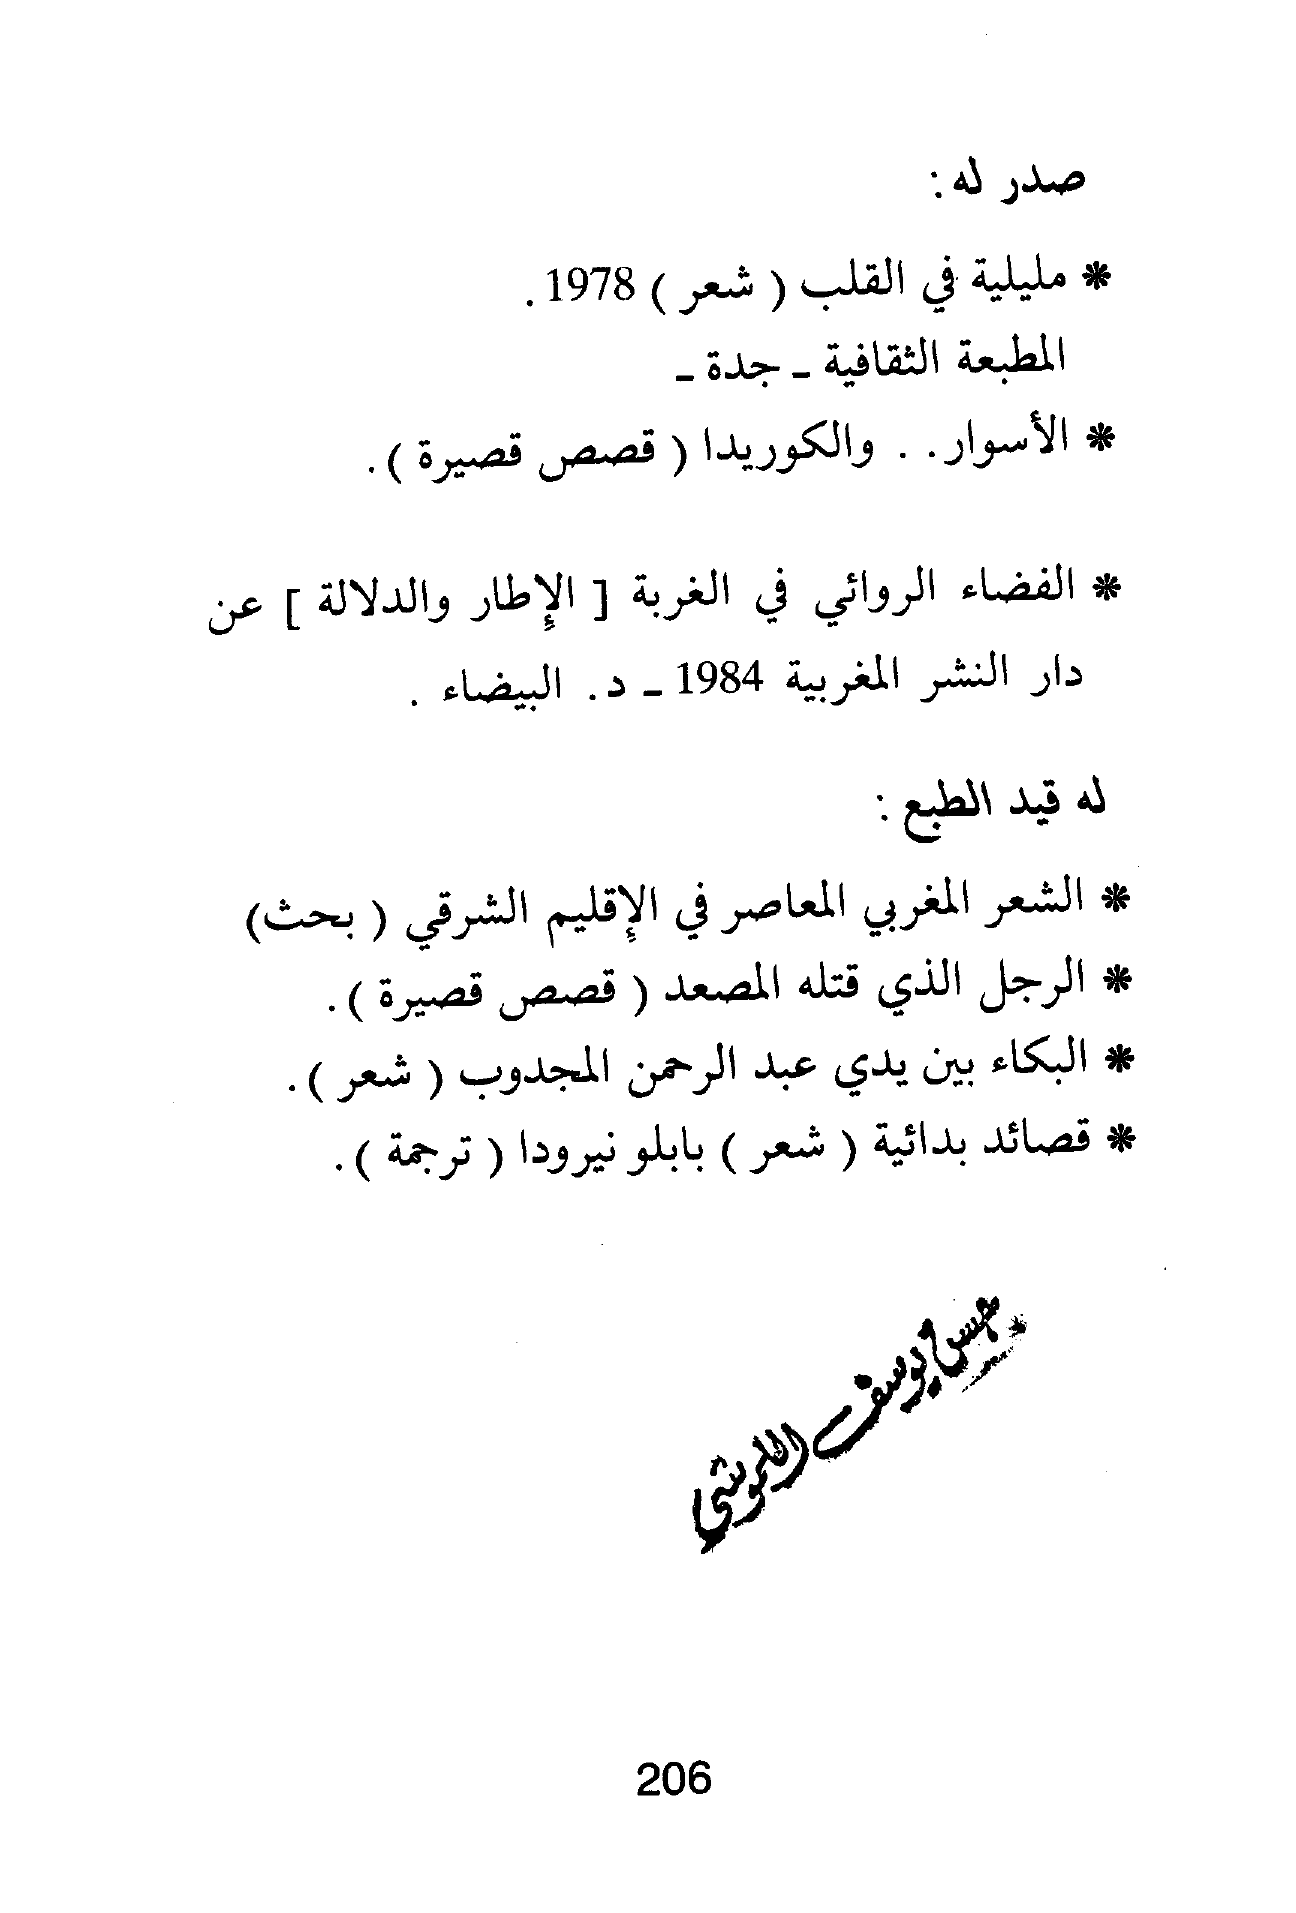 صدر له :
* مليلية في القلب ( شعر ) 1978 .
المطبعة الثقافية ـ جدة ـ
* الأسوار . . والكوريدا ( قصص قصيرة ) .
* الفضاء الروائي في الغربة [ الإطار والدلالة ] عن
دار النشر المغربية 1984 ـ د . البيضاء .
له قيد الطبع :
* الشعر المغربي المعاصر في الإقليم الشرقي ( بحث )
* الرجل الذي قتله المصعد ( قصص قصيرة ) .
* البكاء بين يدي عبد الرحمن المجدوب ( شعر ) .
* قصائد بدائية ( شعر ) بابلو نيرودا ( ترجمة ) .
يوسف
206